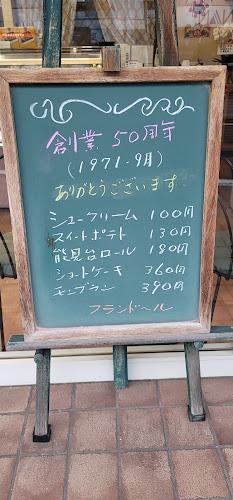 創業 50周年
(1971.9月)
ありがとうございます
シュークリーム 100円
スイートポテト 130円
能見台ロール 180円
ショートケーキ 360円
モンブラン 390円
フランドール